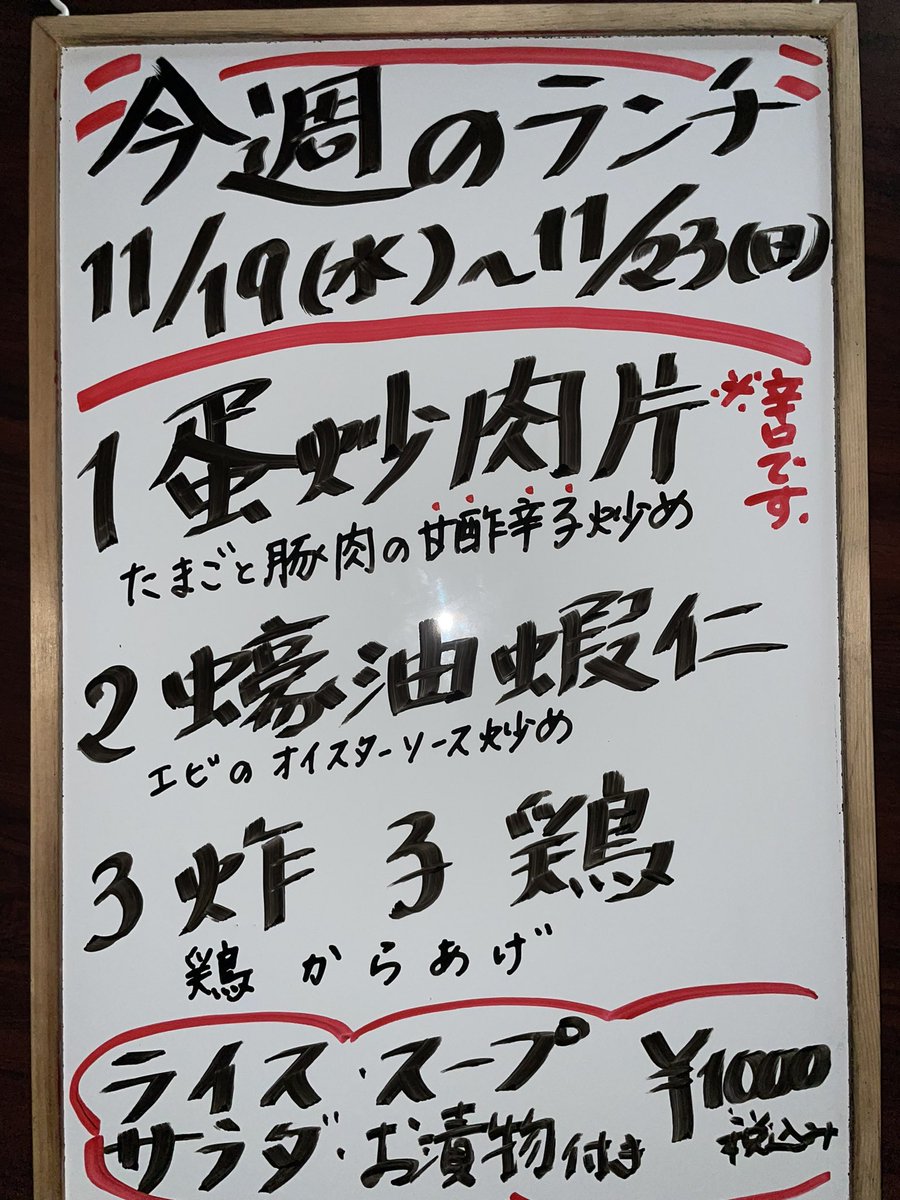 今週のランチ
11/19(水)~11/23(日)
1 蛋炒肉片
※辛口です。
たまごと豚肉の甘酢辛子炒め
2 蠔油蝦仁
エビのオイスターソース炒め
3 炸子鶏
鶏からあげ
ライス・スープ
サラダ・お漬物付き
¥1000
税込み